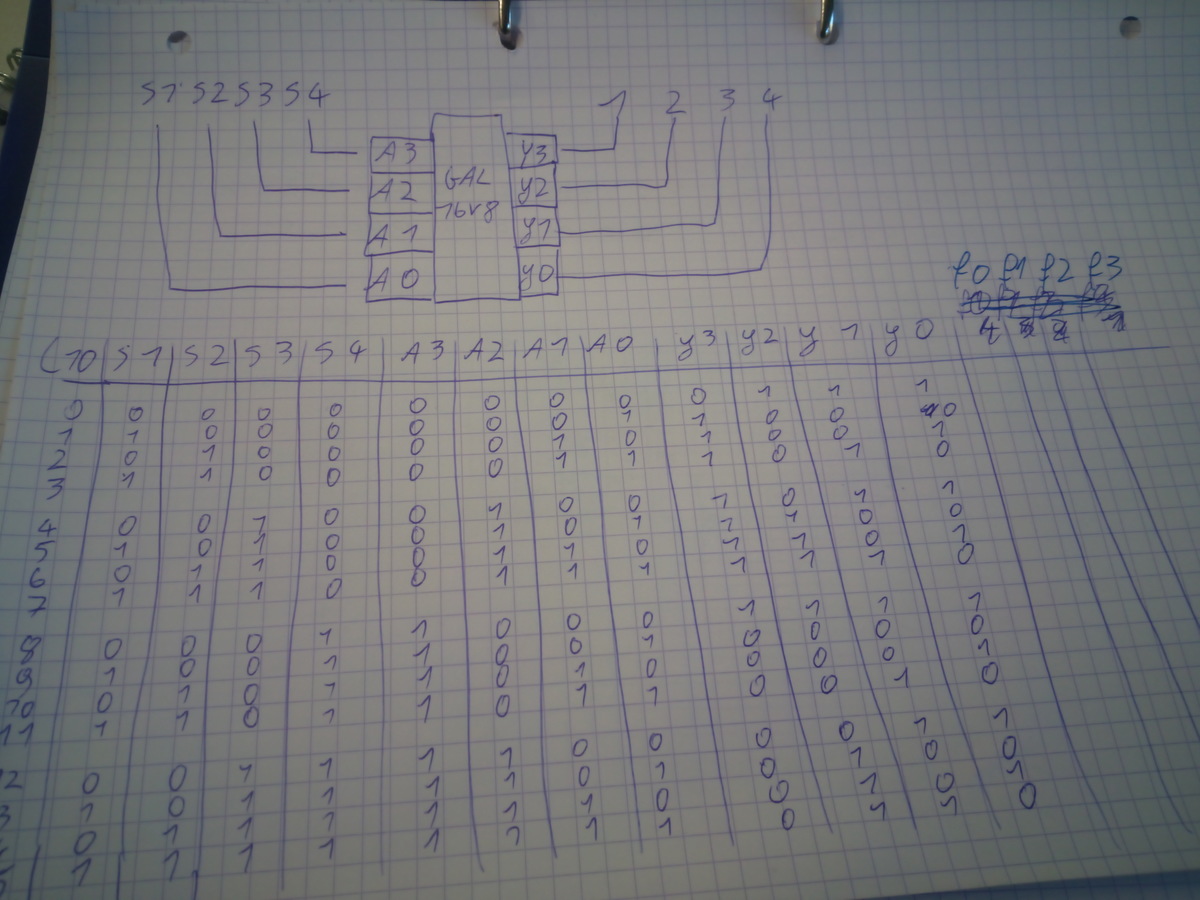 S1 S2 S3 S4 1 2 3 4
A3 Y3
GAL
A2 Y2
16V8
A1 Y1
A0 Y0
f0 f1 f2 f3
(10 S1 S2 S3 S4 A3 A2 A1 A0 y3 y2 y1 y0
0 0 0 0 0 0 0 0 0 0 1 1 1
1 1 0 0 0 0 0 0 1 1 0 0 0
2 0 1 0 0 0 0 1 0 1 0 0 1
3 1 1 0 0 0 0 1 1 1 0 1 0
4 0 0 1 0 0 1 0 0 1 0 1 1
5 1 0 1 0 0 1 0 1 1 1 0 0
6 0 1 1 0 0 1 1 0 1 1 0 1
7 1 1 1 0 0 1 1 1 1 1 1 0
8 0 0 0 1 1 0 0 0 1 1 1 1
9 1 0 0 1 1 0 0 1 0 0 0 0
10 0 1 0 1 1 0 1 0 0 0 0 1
11 1 1 0 1 1 0 1 1 0 0 1 0
2 0 0 1 1 1 1 0 0 0 0 1 1
3 1 0 1 1 1 1 0 1 0 1 0 0
0 1 1 1 1 1 1 0 0 1 0 1
1 1 1 1 1 1 1 1 0 1 1 0